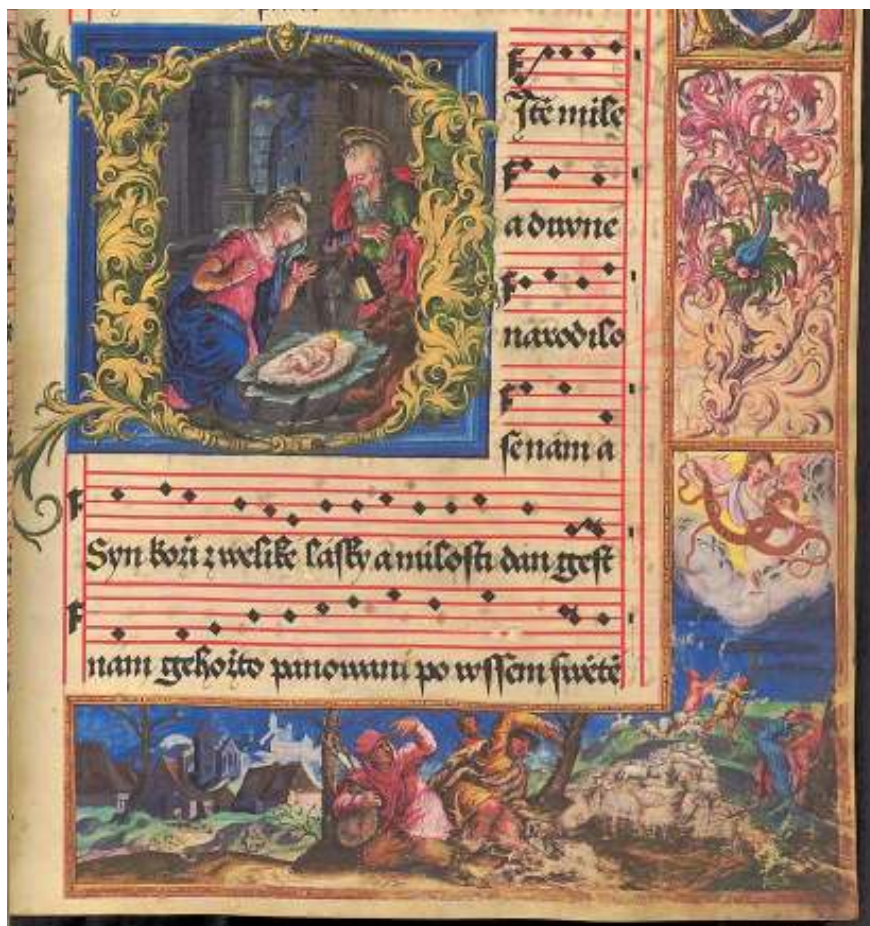 Jtě mile
a duwne
narodilo
se nám a
Syn boží z welike lásky a milosti dan gest
nam gehožto panowani po wssem swětě